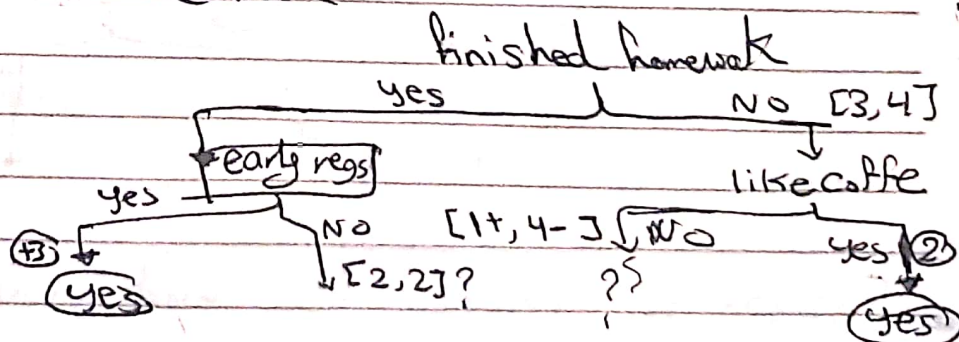 finished homewok
yes NO [3,4]
early regs like coffe
yes NO [1+, 4-] NO yes 2
+3 yes [2,2] ? ?? yes